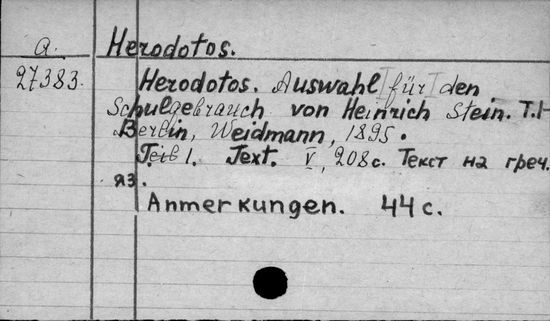 a. Herodotos.
27383. Herodotos. Auswahl für den
Schulgebrauch von Heinrich Stein. T.I
Berlin, Weidmann, 1895.
Teil 1. Text. V, 208 с. Текст на греч.
яз.
Anmerkungen. 44 с.